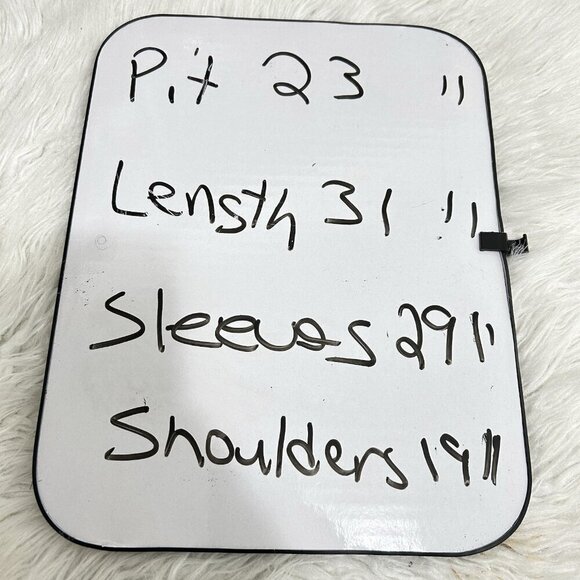 Pit 23 "
Length 31 "
Sleeves 29"
Shoulders 19"